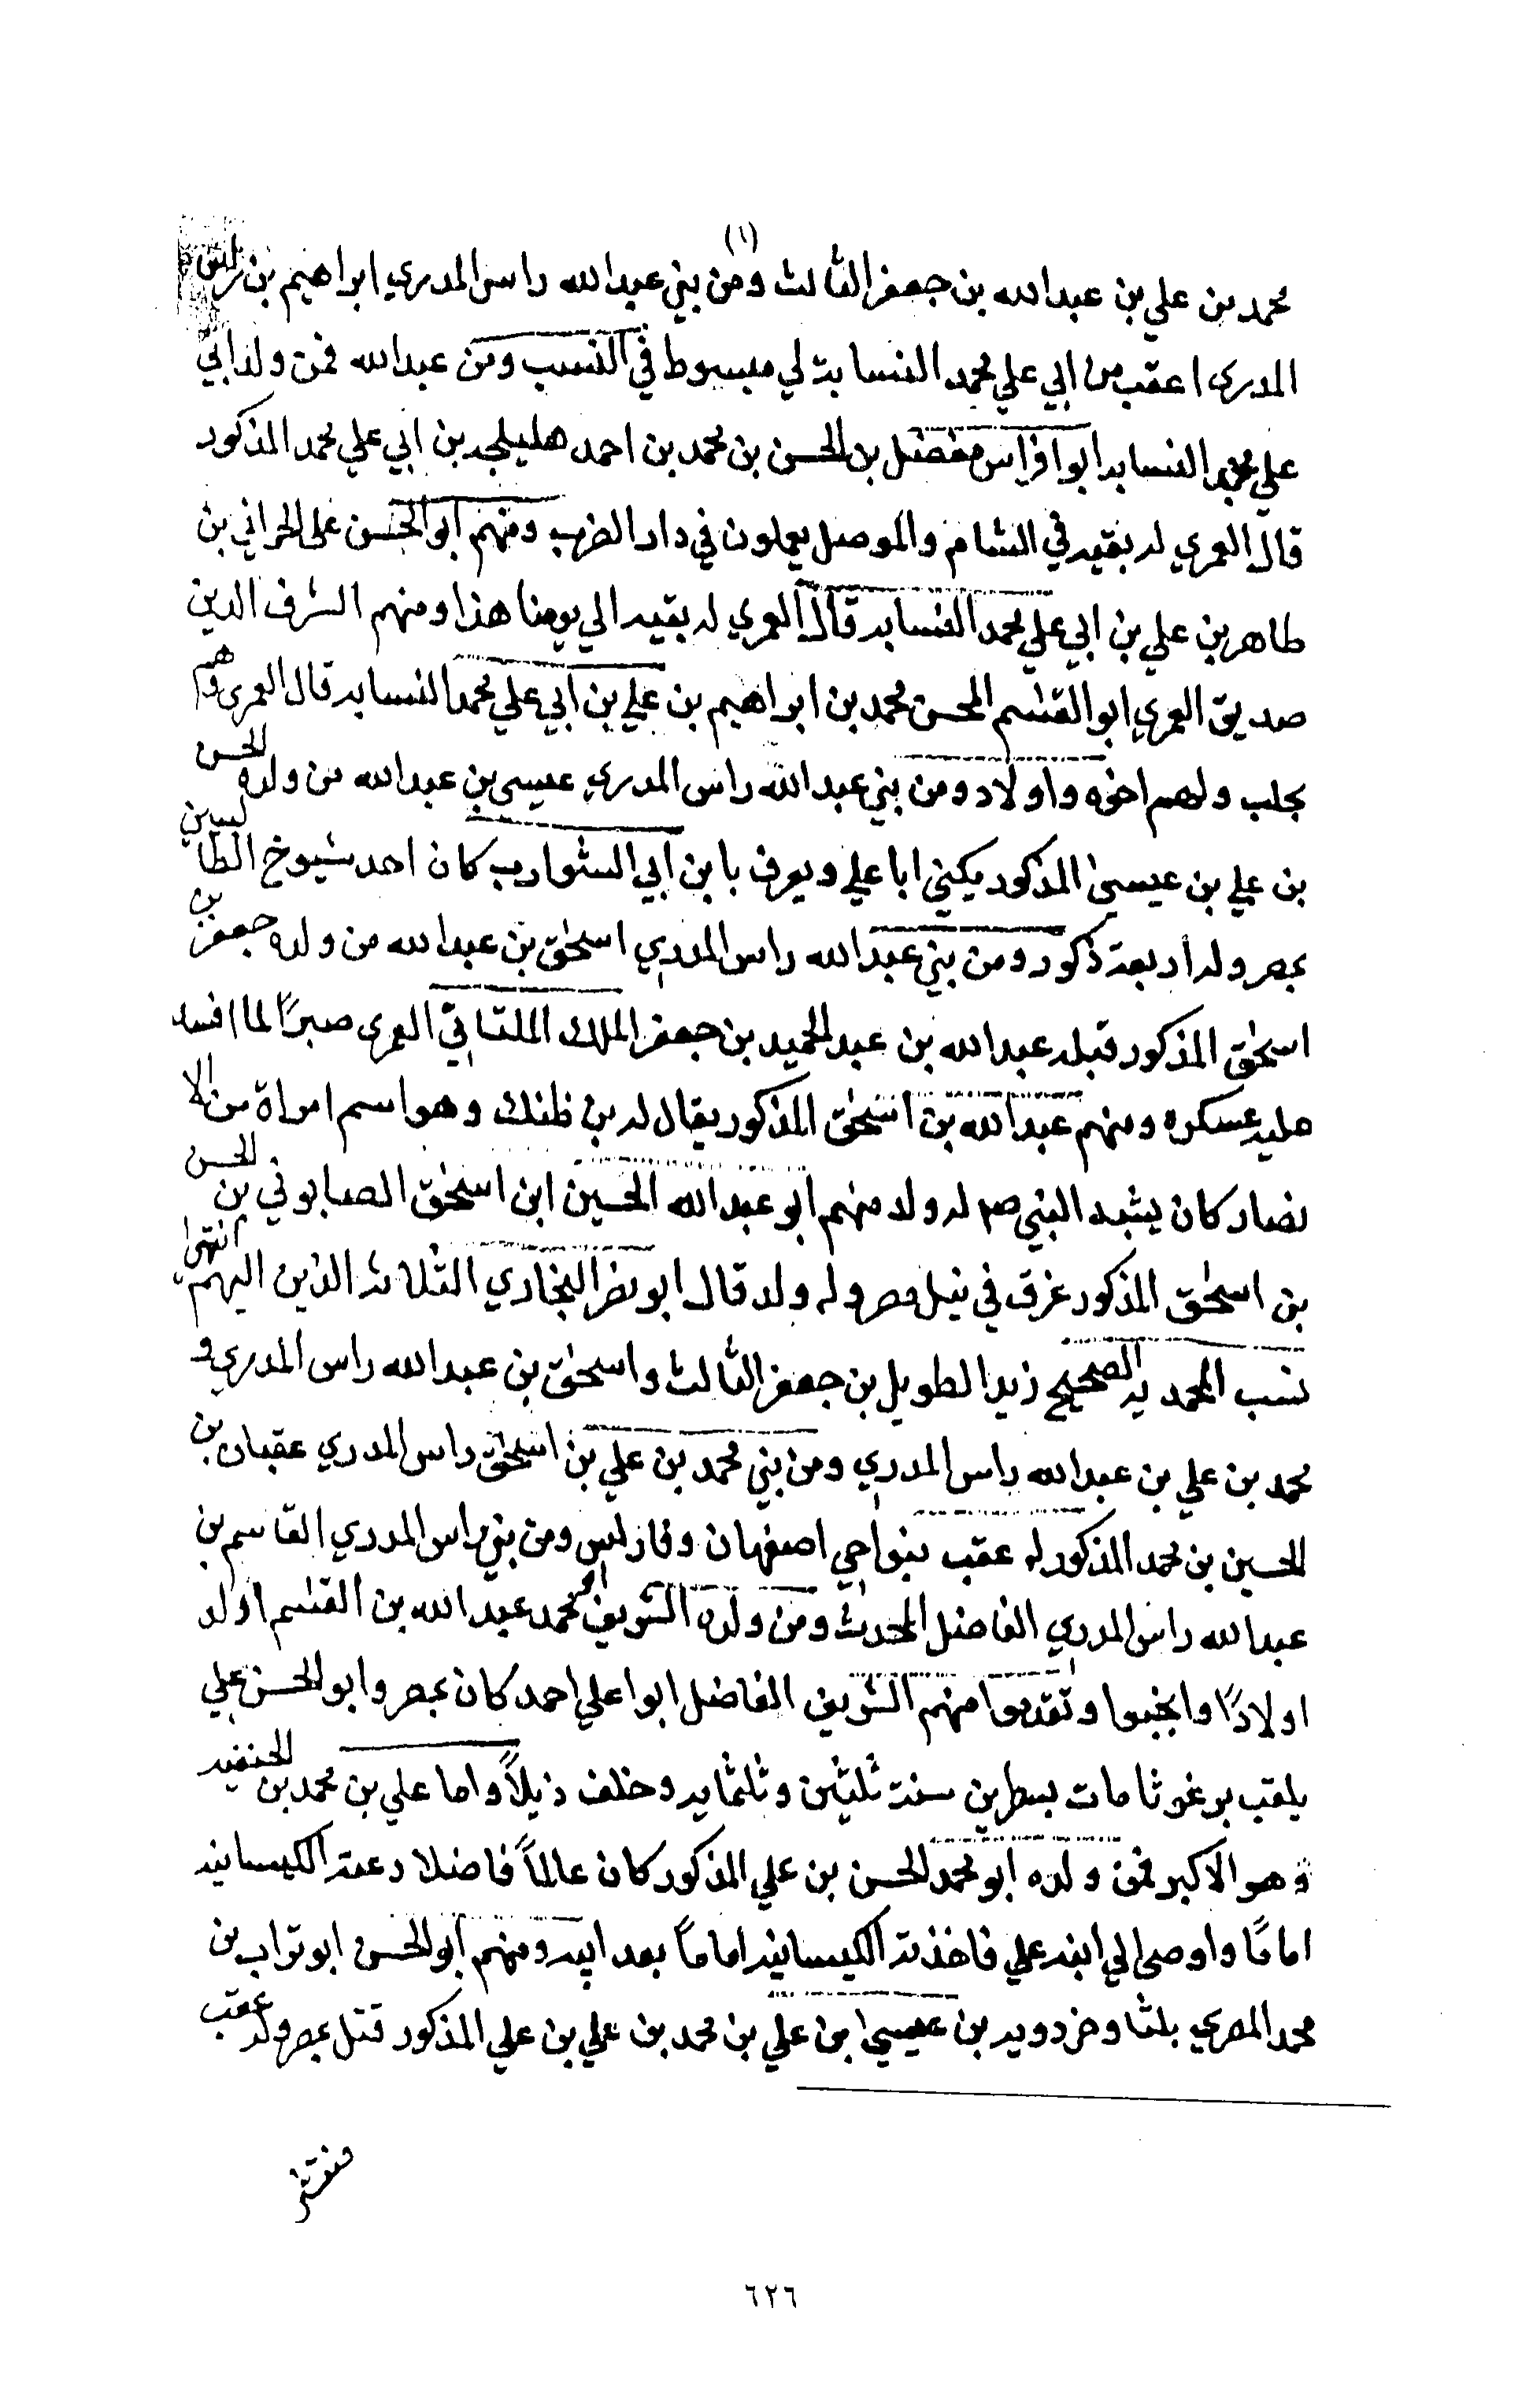 (١)
محمد بن علي بن عبدالله بن جعفر الثالث ومن بني عبدالله راس المدري ابراهيم بن راس
المدرى اعقب من ابي علي محمد النسابة لي مبسوط في النسب ومن عبدالله فمن ولد ابي
علي محمد النسابه ابوا فراس مفضل بن الحسن بن محمد بن احمد هليلجه بن ابي علي محمد المذكور
قال العمري له بقيه في الشام والموصل يعملون في دار الضرب ومنهم ابو الحسن على الحراني بن
طاهر بن علي بن ابي علي محمد النسابه قال العمري له بقيه الي يومنا هذا ومنهم الشرف الدين
صديق العمري ابو القسم المحسن محمد بن ابراهيم بن علي بن ابي علي محمد النسابه قال العمرى وهم
بحلب ولهم اخوه واولاد ومن بني عبدالله راس المدري عيسى بن عبدالله من ولده الحسن
بن علي بن عيسى المذكور يكني ابا علي ويعرف بابن ابي الشوارب كان احد شيوخ الطالبيين
بمصر وله اربعة ذكور ومن بني عبدالله راس المدري اسحق بن عبدالله من ولده جعفر بن
اسحق المذكور قبله عبدالله بن عبد الحميد بن جعفر الملك الملتاني العمرى صبرًا لما افسد
عليه عسكره ومنهم عبدالله بن اسحق المذكور يقال له بن ظنك وهو اسم امراة من الا
نصار كان يشبه النبي صم له ولد منهم ابو عبدالله الحسين ابن اسحق الصابوني بن الحسن
بن اسحق المذكور غرق في نيل مصر وله ولد قال ابو نصر البخاري الثلاثة الذين اليهم انتهى
نسب المحمديه الصحيح زيد الطويل بن جعفر الثالث واسحق بن عبدالله راس المدري و
محمد بن علي بن عبدالله راس المدري ومن بني محمد بن علي بن اسحق راس المدري عقبان بن
الحسين بن محمد المذكور له عقب بنواحي اصفهان وفارس ومن بني راس المدري القاسم بن
عبدالله راس المدري الفاضل المحدث ومن ولده الشريف ابو محمد عبدالله بن القسم اولد
اولادًا وانجبوا وتقدموا منهم الشريف الفاضل ابوا علي احمد كان بمصر وابو الحسن علي
يلقب برغوثا مات بسطرين سنة ثلثين وثلثمايه وخلف ذيلاً واما علي بن محمد بن الحنفيه
وهو الاكبر فمن ولده ابو محمد الحسن بن علي المذكور كان عالمًا فاضلا دعته الكيسانيه
امامًا واوصى الي ابنه علي فاخذته الكيسانيه امامًا بعد ابيه ومنهم ابو الحسن ابو تراب بن
محمد المصري بلثا وخردويه بن عيسى ابن علي بن محمد بن علي بن علي المذكور قتل بمصر وله عقب
٦٢٦